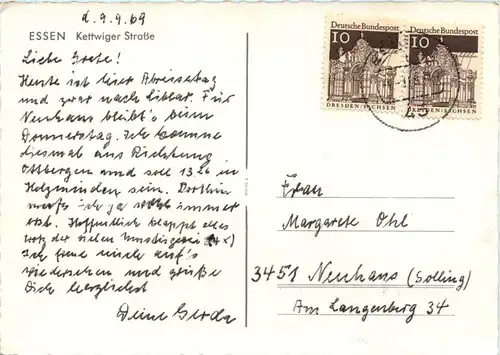 d. 9.9.69
ESSEN Kettwiger Straße
Liebe Grete!
Heute ist hier Abreisetag
und zwar nach Liblar. Für
Neuhaus bleibt's beim
Donnerstag. Ich komme
diesmal aus Richtung
Ottbergen und soll 13 26 in
Holzminden sein. Dorthin
muß ich ja immer
erst. Hoffentlich klappt alles
trotz der vielen Umsteigerei
Ich freue mich auf's
Wiedersehen und grüße
Dich herzlichst
Deine Gerda
Deutsche Bundespost
10
DRESDEN/SACHSEN
Deutsche Bundespost
10
DRESDEN/SACHSEN
Frau
Margarete Ohl
3451 Neuhaus (Solling)
Am Langenberg 34